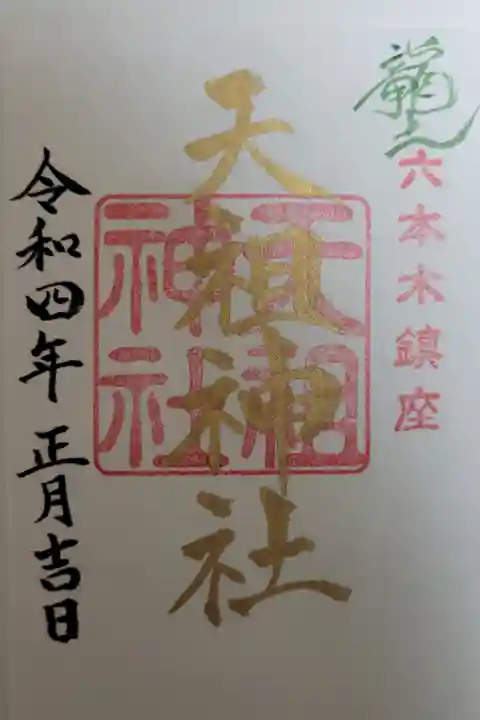 龍土
六本木鎮座
天祖神社
天祖神社
令和四年 正月吉日